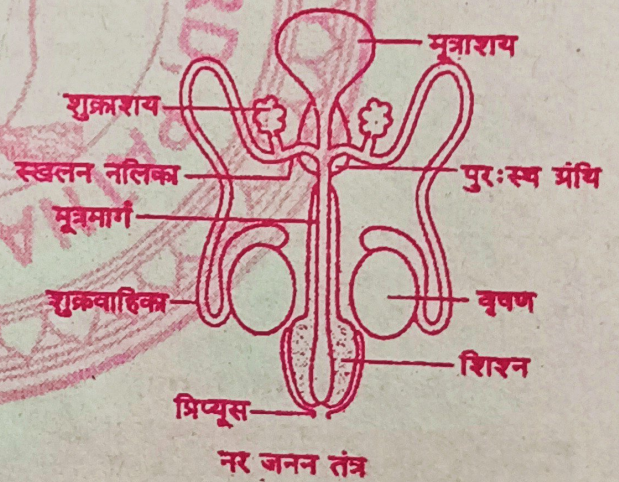 मूत्राशय
शुक्राशय
स्खलन नलिका
पुरःस्थ ग्रंथि
मूत्रमार्ग
शुक्रवाहिका
वृषण
शिश्न
प्रिप्यूस
नर जनन तंत्र